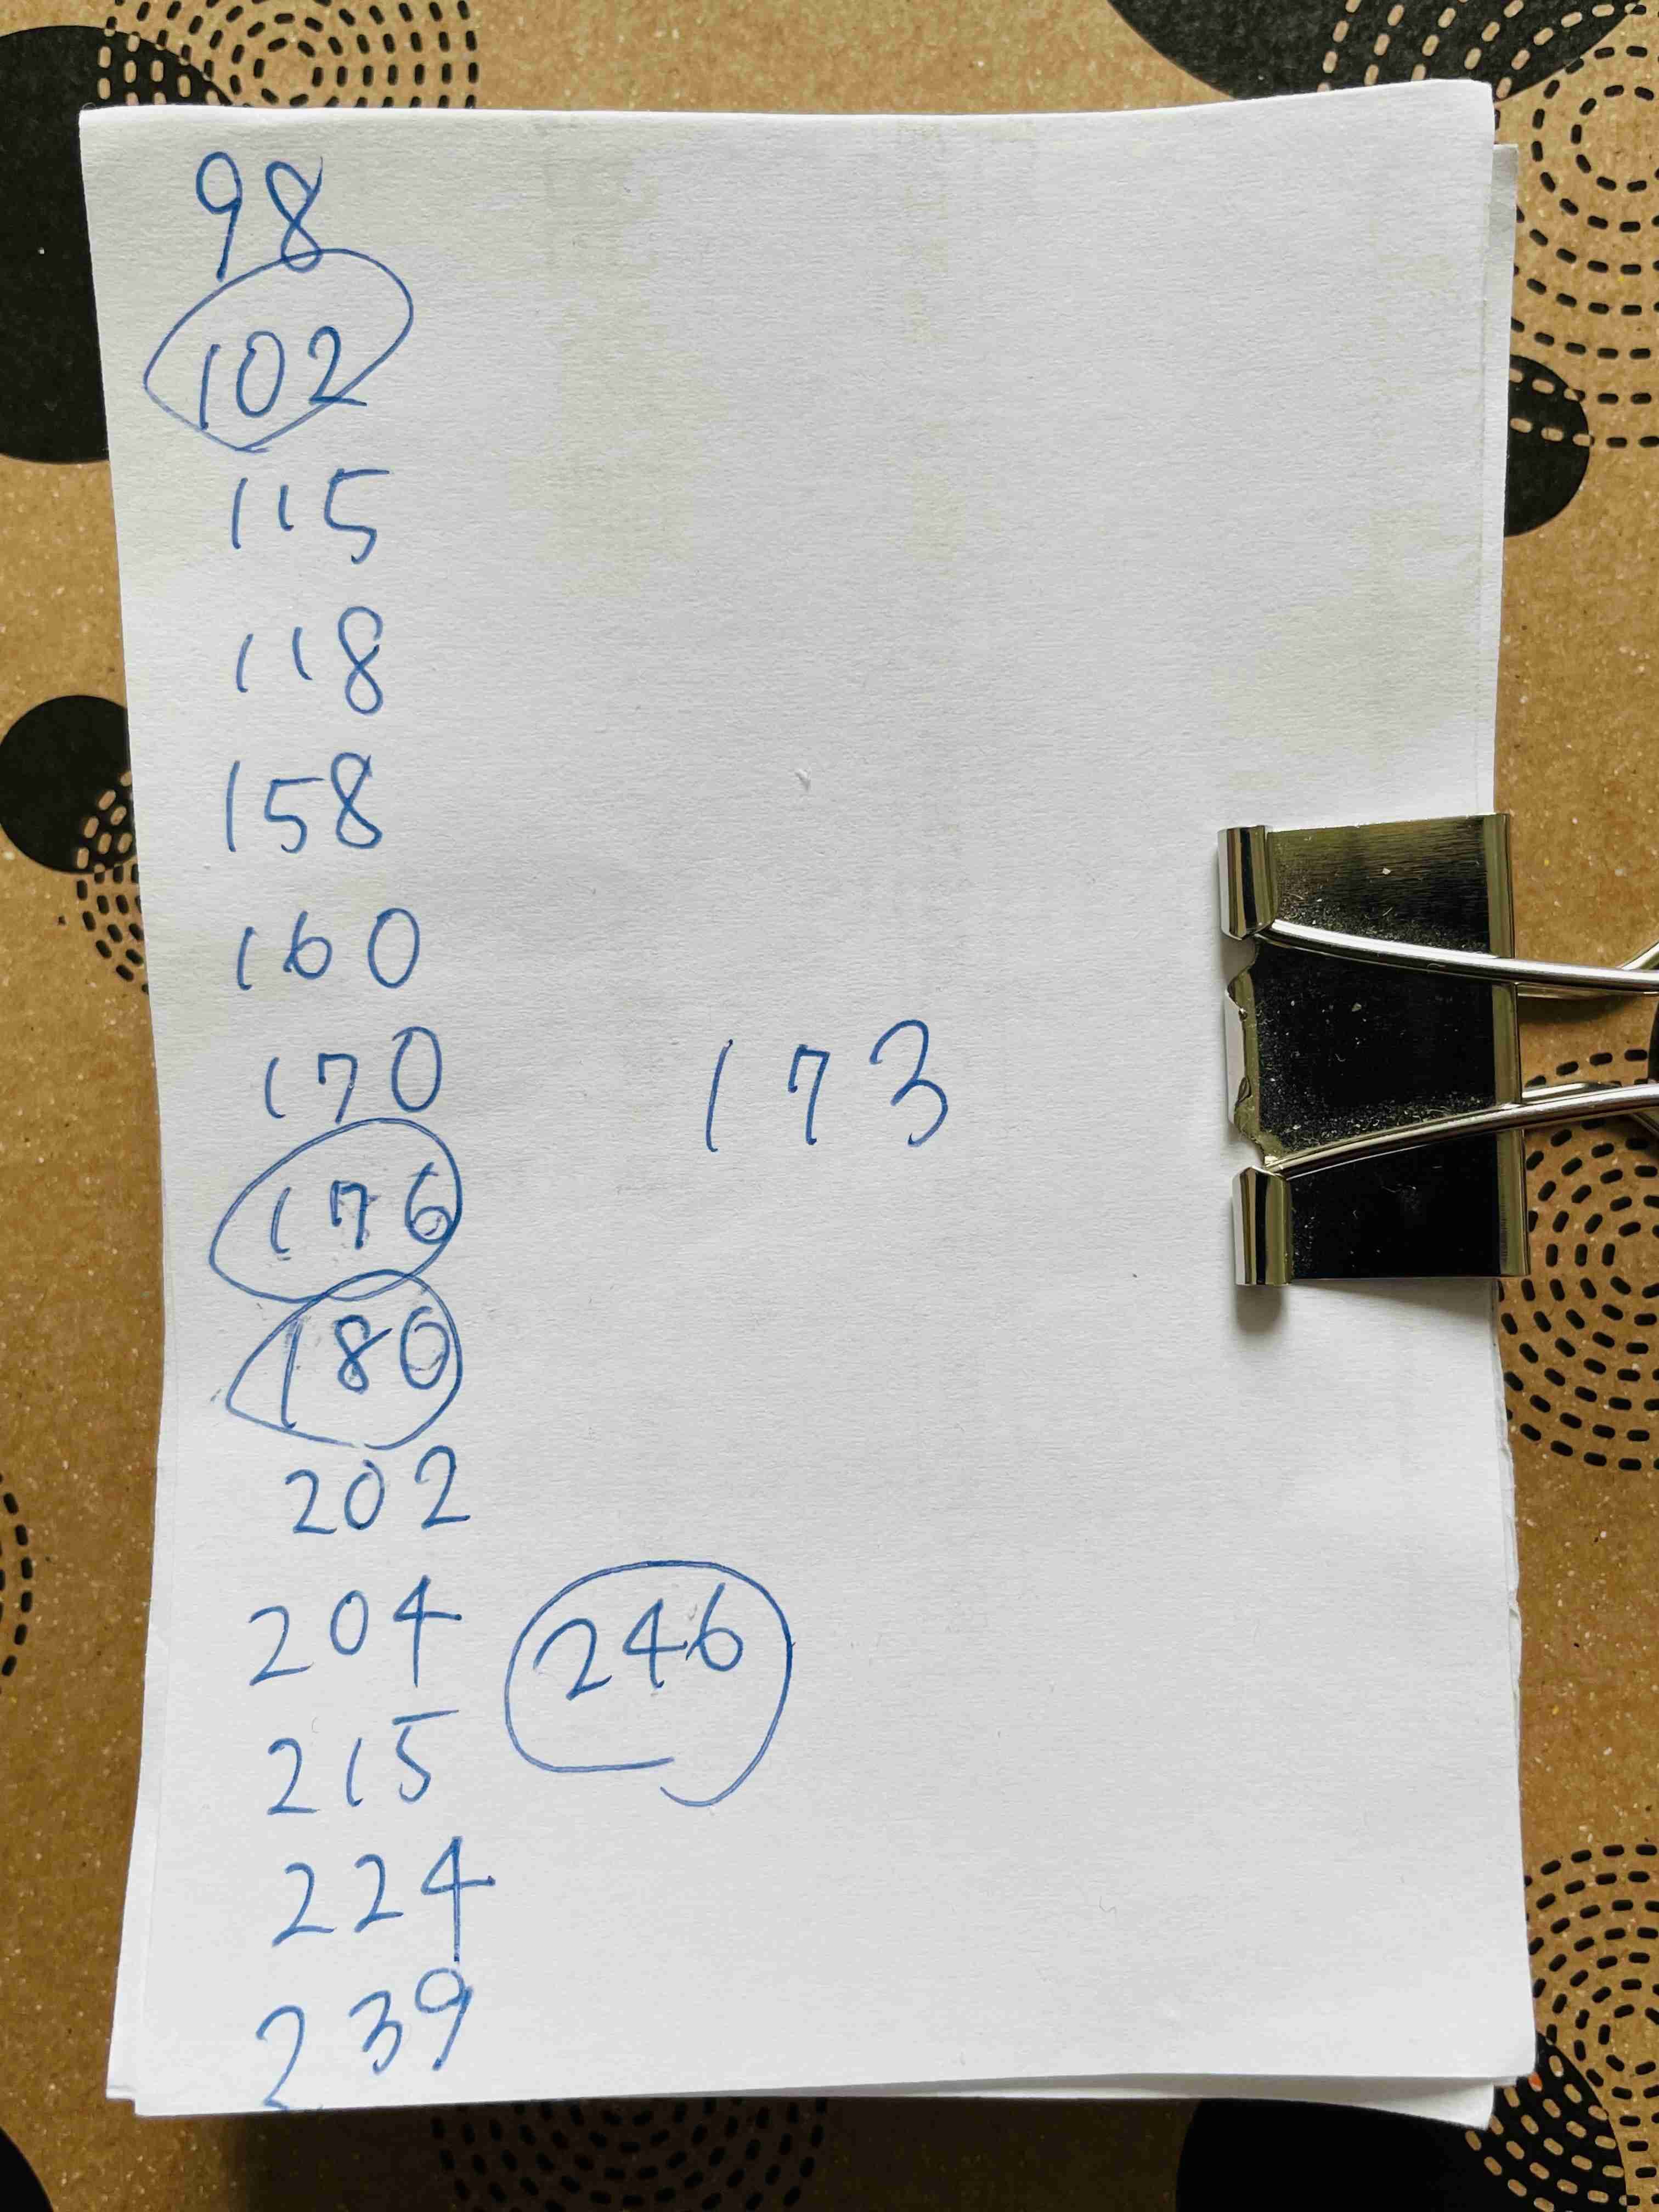 98
102
115
118
158
160
170 173
176
180
202
204 246
215
224
239